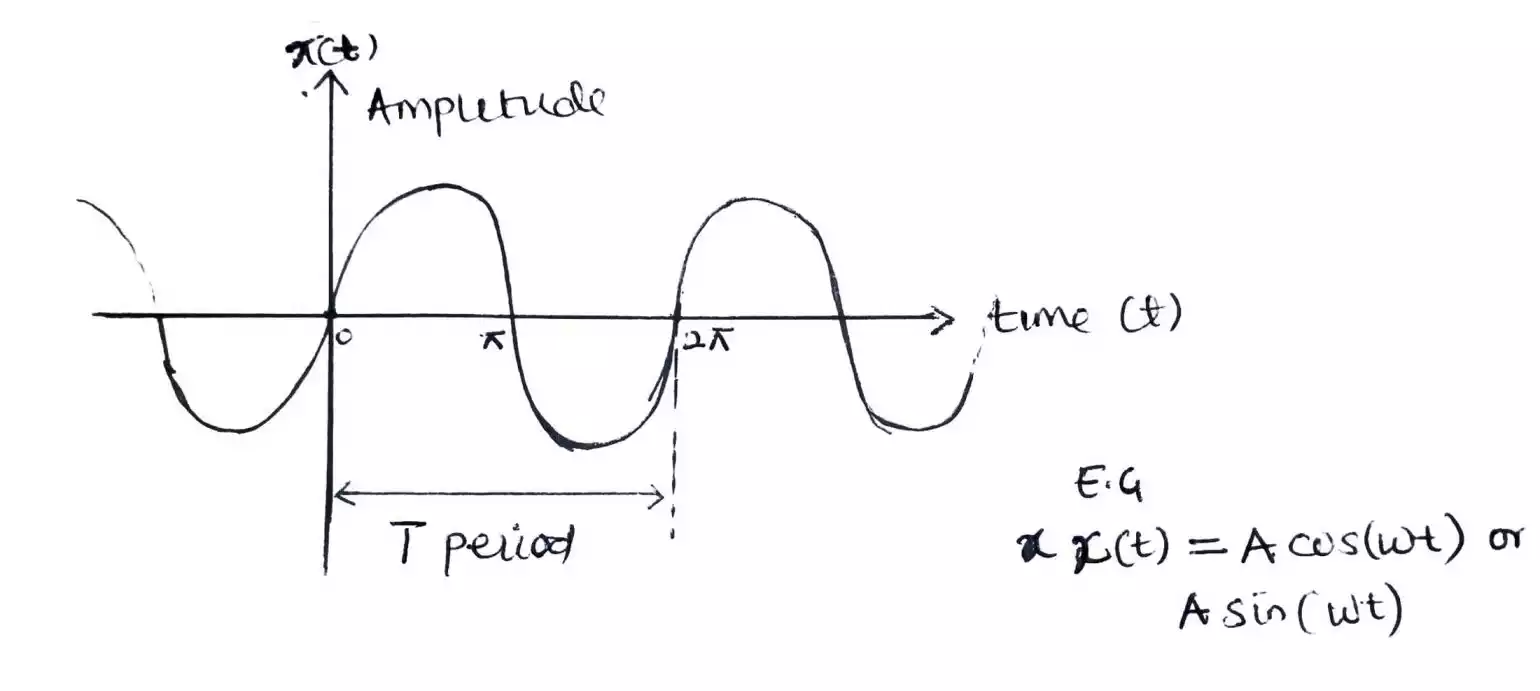 x(t)
Amplitude
time (t)
0
π
2π
T period
E.G
x x(t) = A cos(wt) or
A sin(wt)